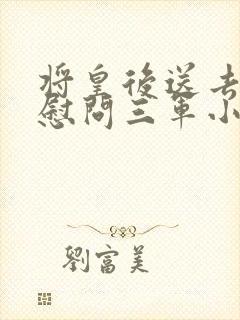 將皇後送去
慰問三軍小
劉富美